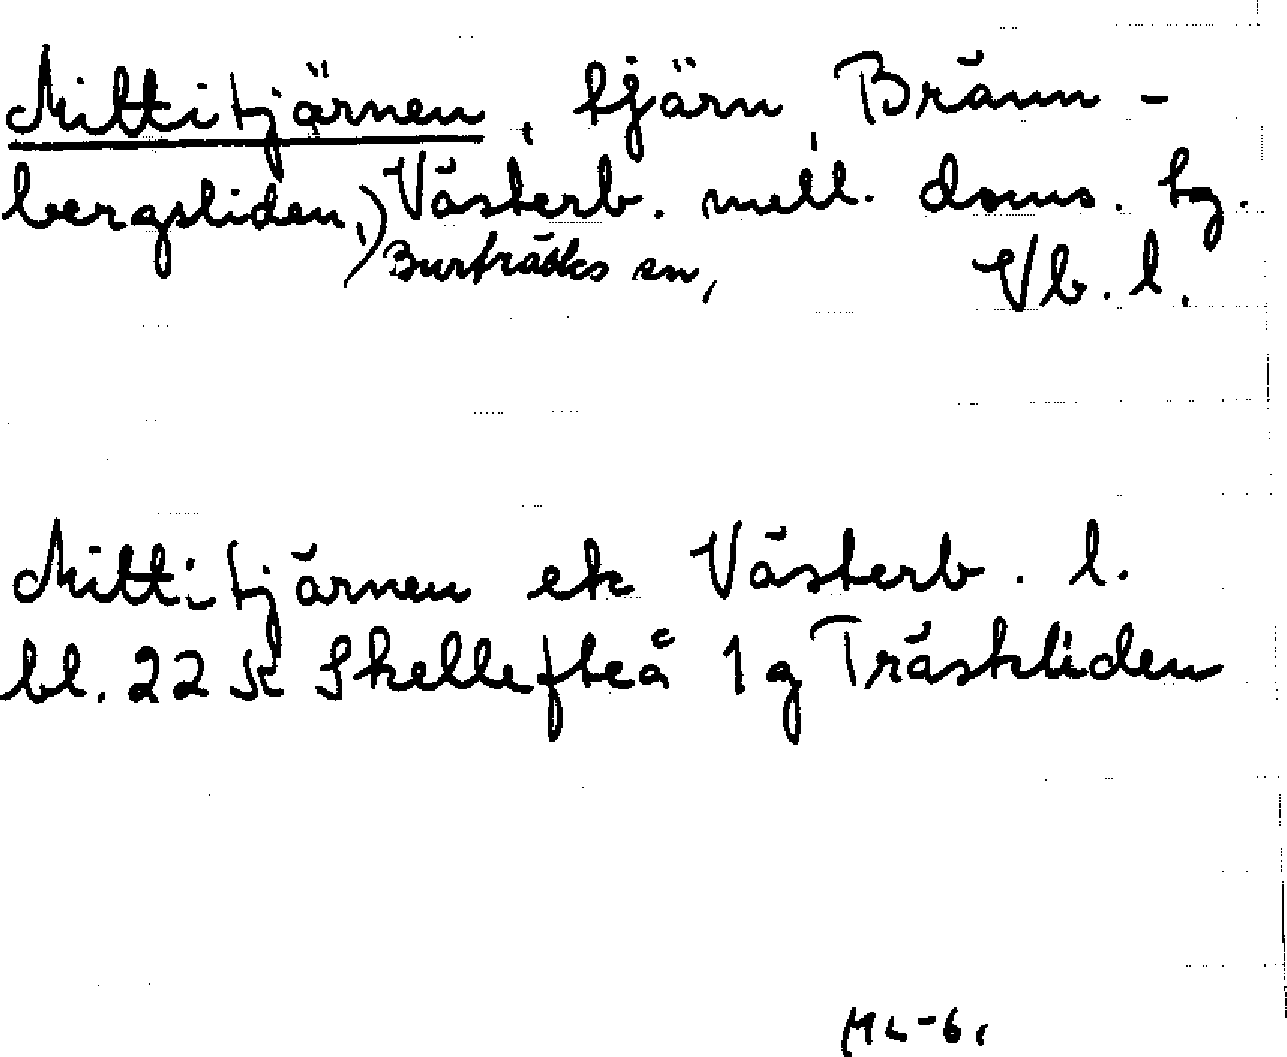 Mittitjärnen, tjärn, Bränn-
bergsliden,) Västerb. mell. doms. tg.
Burträsks sn, Vb. l.
Mittitjärnen ek Västerb. l.
bl. 22 K Skellefteå 1 g Träskliden